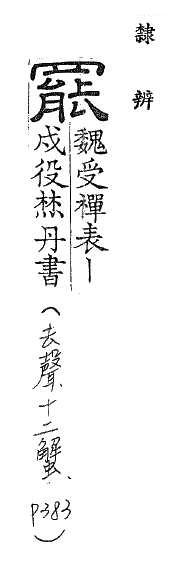 隸辨
罷
魏受禪表丨
戍役焚丹書
(去聲、十二蟹、P383)